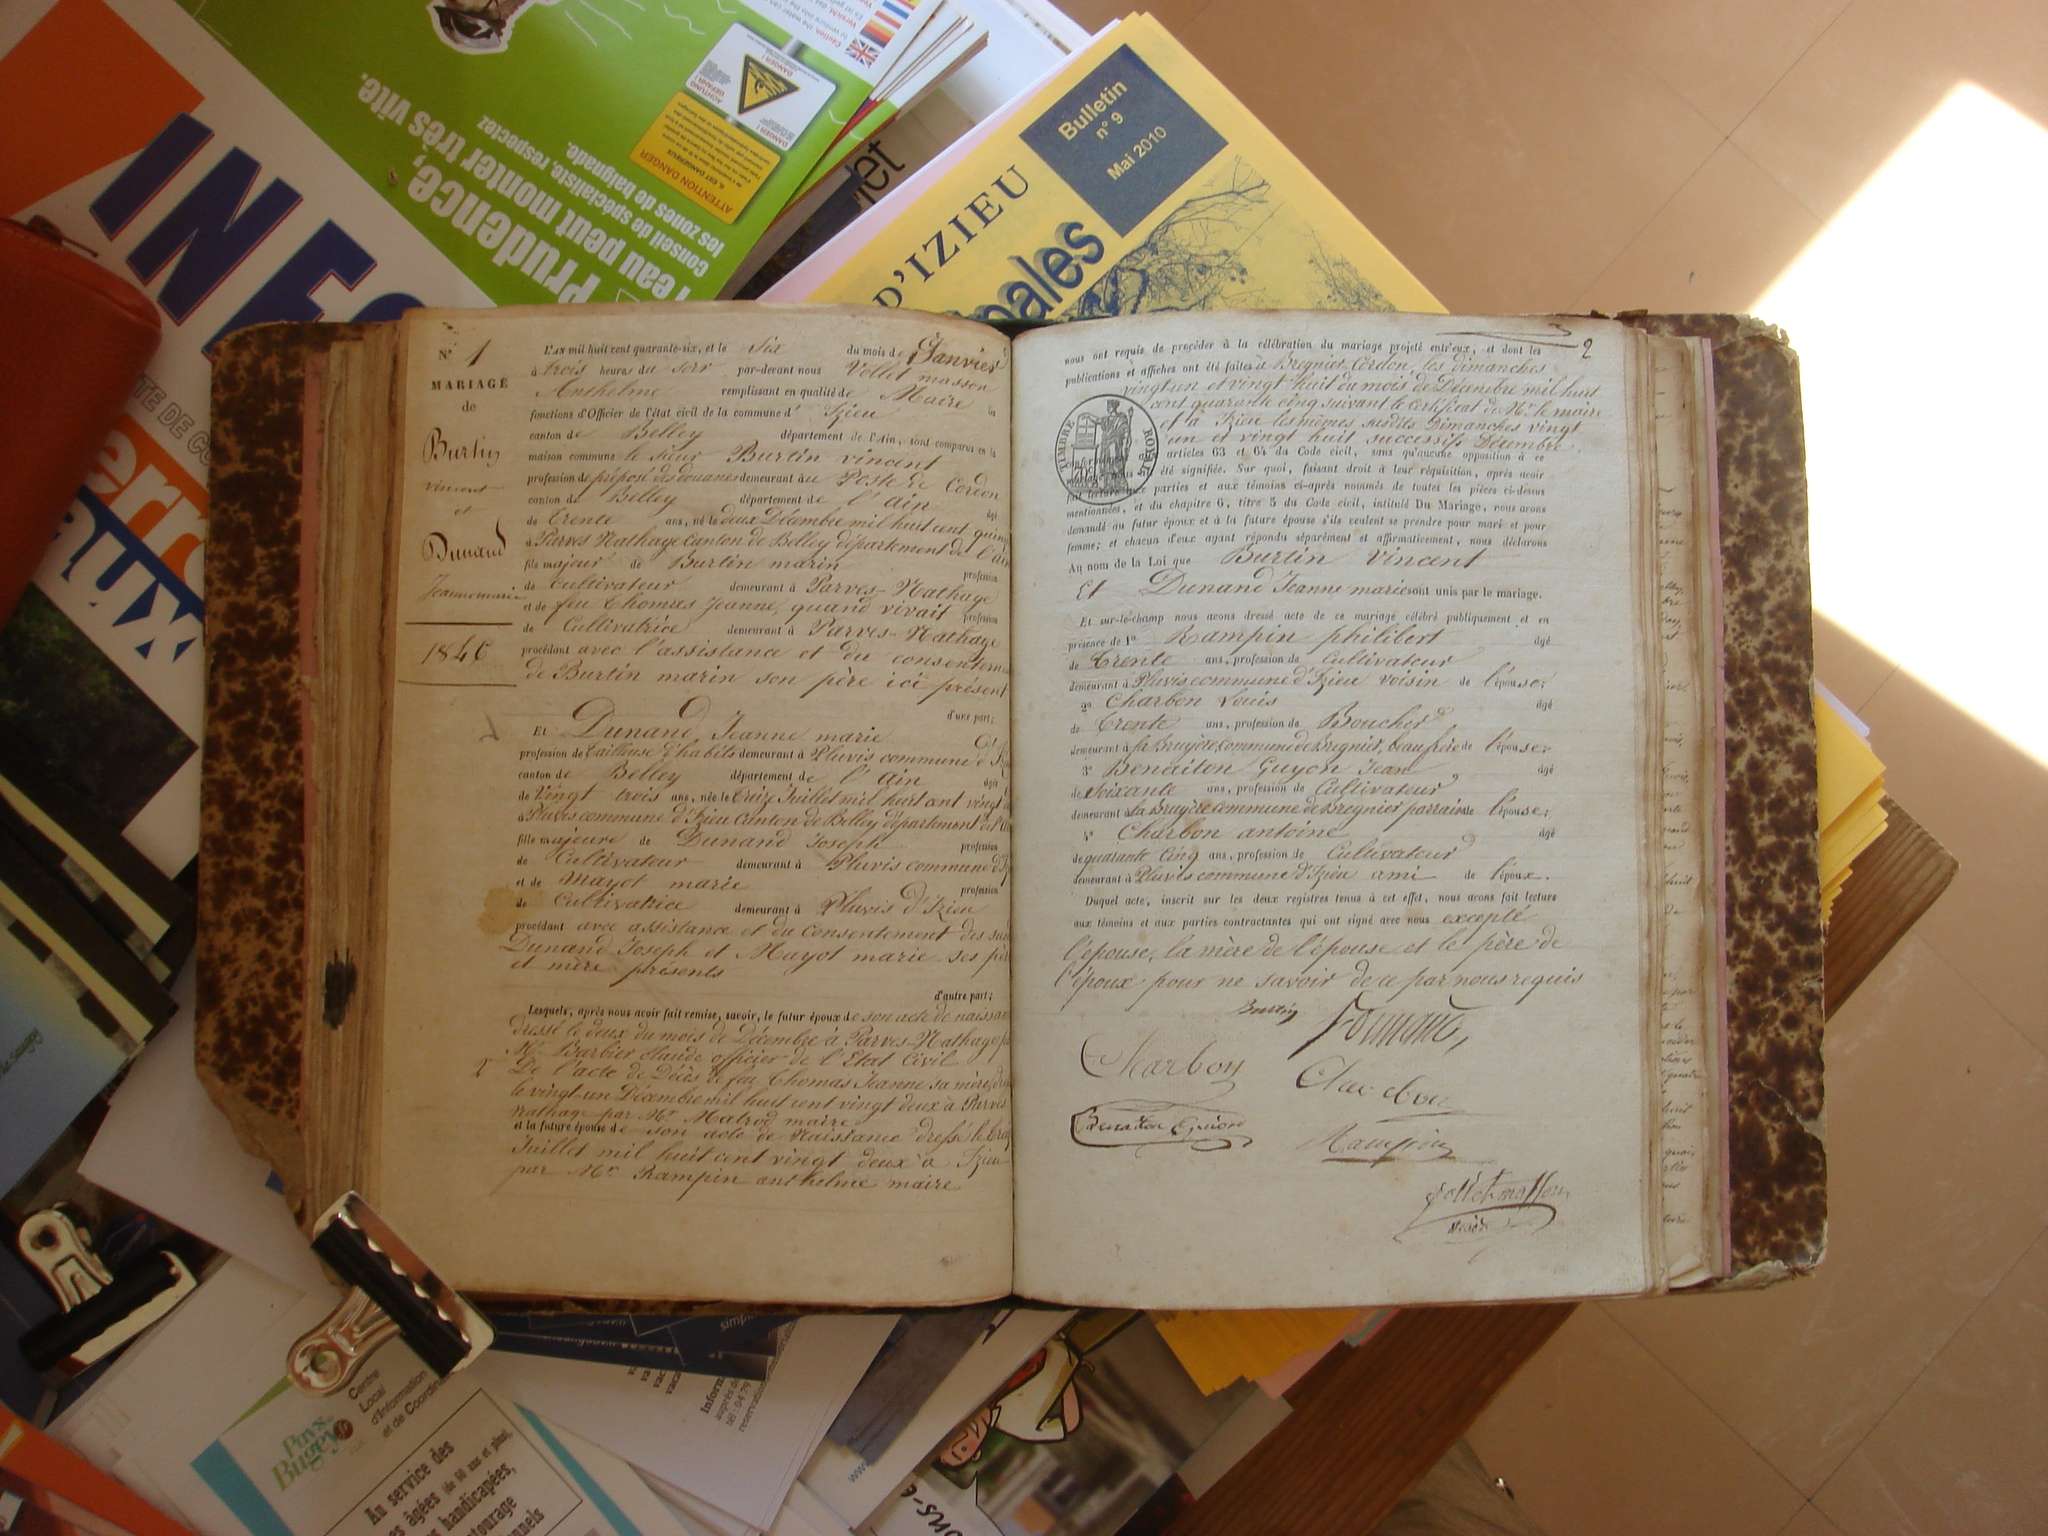 INFO
Prudence,
l'eau peut monter très vite.
conseil de spécialiste, respectez
les zones de baignade.
ATTENTION DANGER
DANGER !
ACHTUNG
GEFAHR !
D'IZIEU
pales
Bulletin
n° 9
Mai 2010
N° 1
MARIAGE
de
Burtin
vincent
et
Dunand
Jeanne marie
1846
L'AN mil huit cent quarante-six, et le six du mois de Janvier
à trois heures du soir par-devant nous Vollet masson
Anthelme remplissant en qualité de Maire les
fonctions d'Officier de l'état civil de la commune d' Izieu
canton de Belley département de l'Ain, sont comparus en la
maison commune le sieur Burtin vincent
profession de préposé des douanes demeurant au Poste de Cordon
canton de Belley département de l'ain âgé
de trente ans, né le deux Décembre mil huit cent quinze
à Parves Nathage Canton de Belley département de l'ain
fils majeur de Burtin marin profession
de Cultivateur demeurant à Parves-Nathage
et de feu Thomas Jeanne, quand vivait profession
de Cultivatrice demeurant à Parves-Nathage
procédant avec l'assistance et du consentem
de Burtin marin son père ici présent
d'une part;
Et Dunand Jeanne marie
profession de tailleuse d'habits demeurant à Pluvis commune d'
canton de Belley département de l'ain âgée
de Vingt trois ans, née le treize Juillet mil huit cent vingt
à Pluvis commune d'Izieu Canton de Belley département de l'
fille majeure de Dunand Joseph profession
de Cultivateur demeurant à Pluvis commune d'
et de Mayot marie profession
de Cultivatrice demeurant à Pluvis d'Izieu
procédant avec assistance et du consentement des sus
Dunand Joseph et Mayot marie ses pè
et mère présents
d'autre part;
Lesquels, après nous avoir fait remise, savoir, le futur époux de son acte de naissan
dressé le deux du mois de Décembre à Parves-Nathage p
Mr Barbier claude officier de l'Etat Civil
De l'acte de Décès de feu Thomas Jeanne sa mère, d
le vingt-un Décembre mil huit cent vingt deux à Parves
Nathage par Mr maire
et la future épouse de son acte de Naissance dressé le
Juillet mil huit cent vingt deux à Izieu
par Mr Rampin anthelme maire
2
nous ont requis de procéder à la célébration du mariage projeté entr'eux, et dont les
publications et affiches ont été faites à Bregnier Cordon, les dimanches
vingt un et vingt huit du mois de Décembre mil huit
cent quarante cinq suivant le certificat de Mr le maire
et à Izieu les mêmes susdits Dimanches vingt
un et vingt huit successifs Décembre
TIMBRE ROYAL
articles 63 et 64 du Code civil, sans qu'aucune opposition à ce
été signifiée. Sur quoi, faisant droit à leur réquisition, après avoir
fait lecture aux parties et aux témoins ci-après nommés de toutes les pièces ci-dessus
mentionnées, et du chapitre 6, titre 5 du Code civil, intitulé Du Mariage, nous avons
demandé au futur époux et à la future épouse s'ils veulent se prendre pour mari et pour
femme; et chacun d'eux ayant répondu séparément et affirmativement, nous déclarons
Au nom de la Loi que Burtin vincent
Et Dunand Jeanne marie sont unis par le mariage.
Et sur-le-champ nous avons dressé acte de ce mariage célébré publiquement et en
présence de 1° Rampin philibert âgé
de trente ans, profession de Cultivateur
demeurant à Pluvis commune d'Izieu voisin de l'épouse;
2° Charbon Louis âgé
de trente ans, profession de Boucher
demeurant à la Bruyère commune de Bregnier, beau frère de l'épouse
3° Benaiton Guyon Jean âgé
de Soixante ans, profession de Cultivateur
demeurant à la Bruyère commune de Bregnier parrain de l'épouse;
4° Charbon antoine âgé
de quarante Cinq ans, profession de Cultivateur
demeurant à Pluvis commune d'Izieu ami de l'époux.
Duquel acte, inscrit sur les deux registres tenus à cet effet, nous avons fait lecture
aux témoins et aux parties contractantes qui ont signé avec nous excepté
l'épouse, la mère de l'épouse et le père de
l'époux pour ne savoir de ce par nous requis
Burtin
Charbon
Benaiton Guion
Rampin
Vollet masson
maire
Pays du
Bugey
Centre
Local
d'Information
et de Coordina
Au service des
âgées (de 60 ans et plus),
handicapées,
tourage
nnels
www